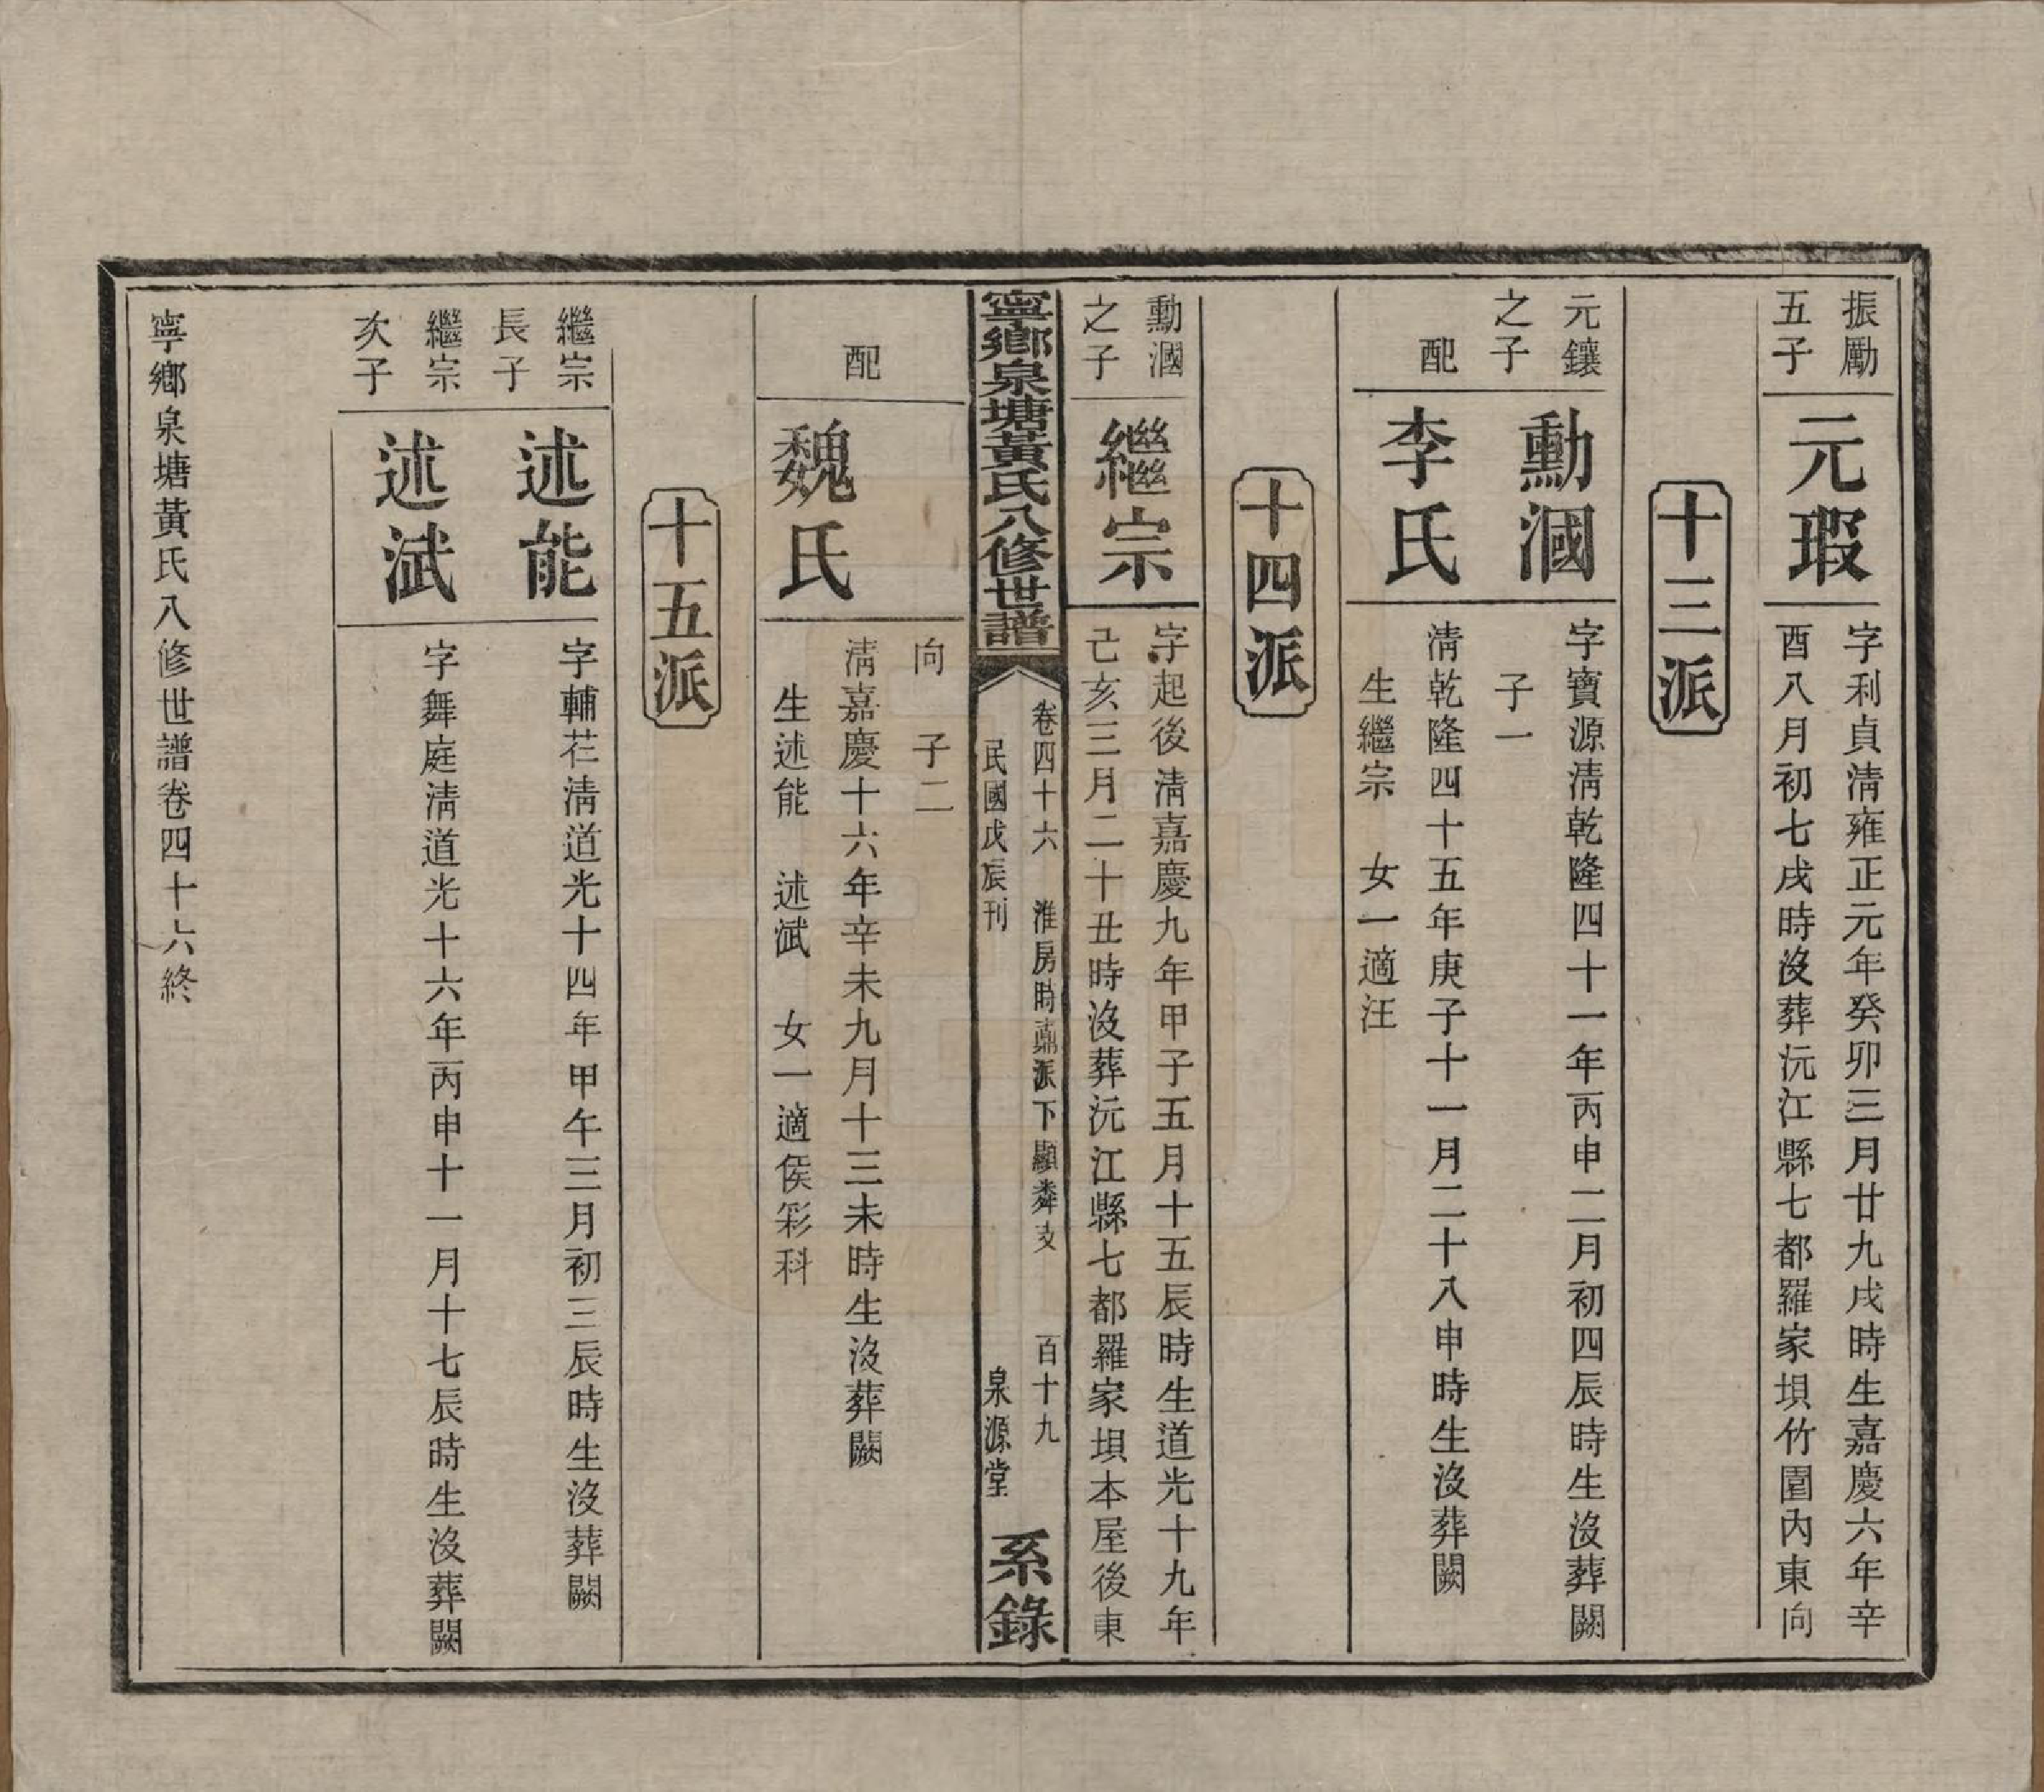 振勵
五子
元瑕
字利貞淸雍正元年癸卯三月廿九戌時生嘉慶六年辛
酉八月初七戌時沒葬沅江縣七都羅家垻竹園內東向
十三派
元鑲
之子
勳漍
字寶源淸乾隆四十一年丙申二月初四辰時生沒葬闕
子一
配
李氏
淸乾隆四十五年庚子十一月二十八申時生沒葬闕
生繼宗　女一適汪
十四派
勳漍
之子
繼宗
字起後淸嘉慶九年甲子五月十五辰時生道光十九年
己亥三月二十丑時沒葬沅江縣七都羅家垻本屋後東
寧鄉泉塘黃氏八修世譜
卷四十六　淮房時鼒派下顯粦支　百十九
民國戊辰刊　泉源堂
系錄
向　子二
配
魏氏
淸嘉慶十六年辛未九月十三未時生沒葬闕
生述能　述斌　女一適侯彩科
十五派
繼宗
長子
述能
字輔茫淸道光十四年甲午三月初三辰時生沒葬闕
繼宗
次子
述斌
字舞庭淸道光十六年丙申十一月十七辰時生沒葬闕
寧鄉泉塘黃氏八修世譜卷四十六終